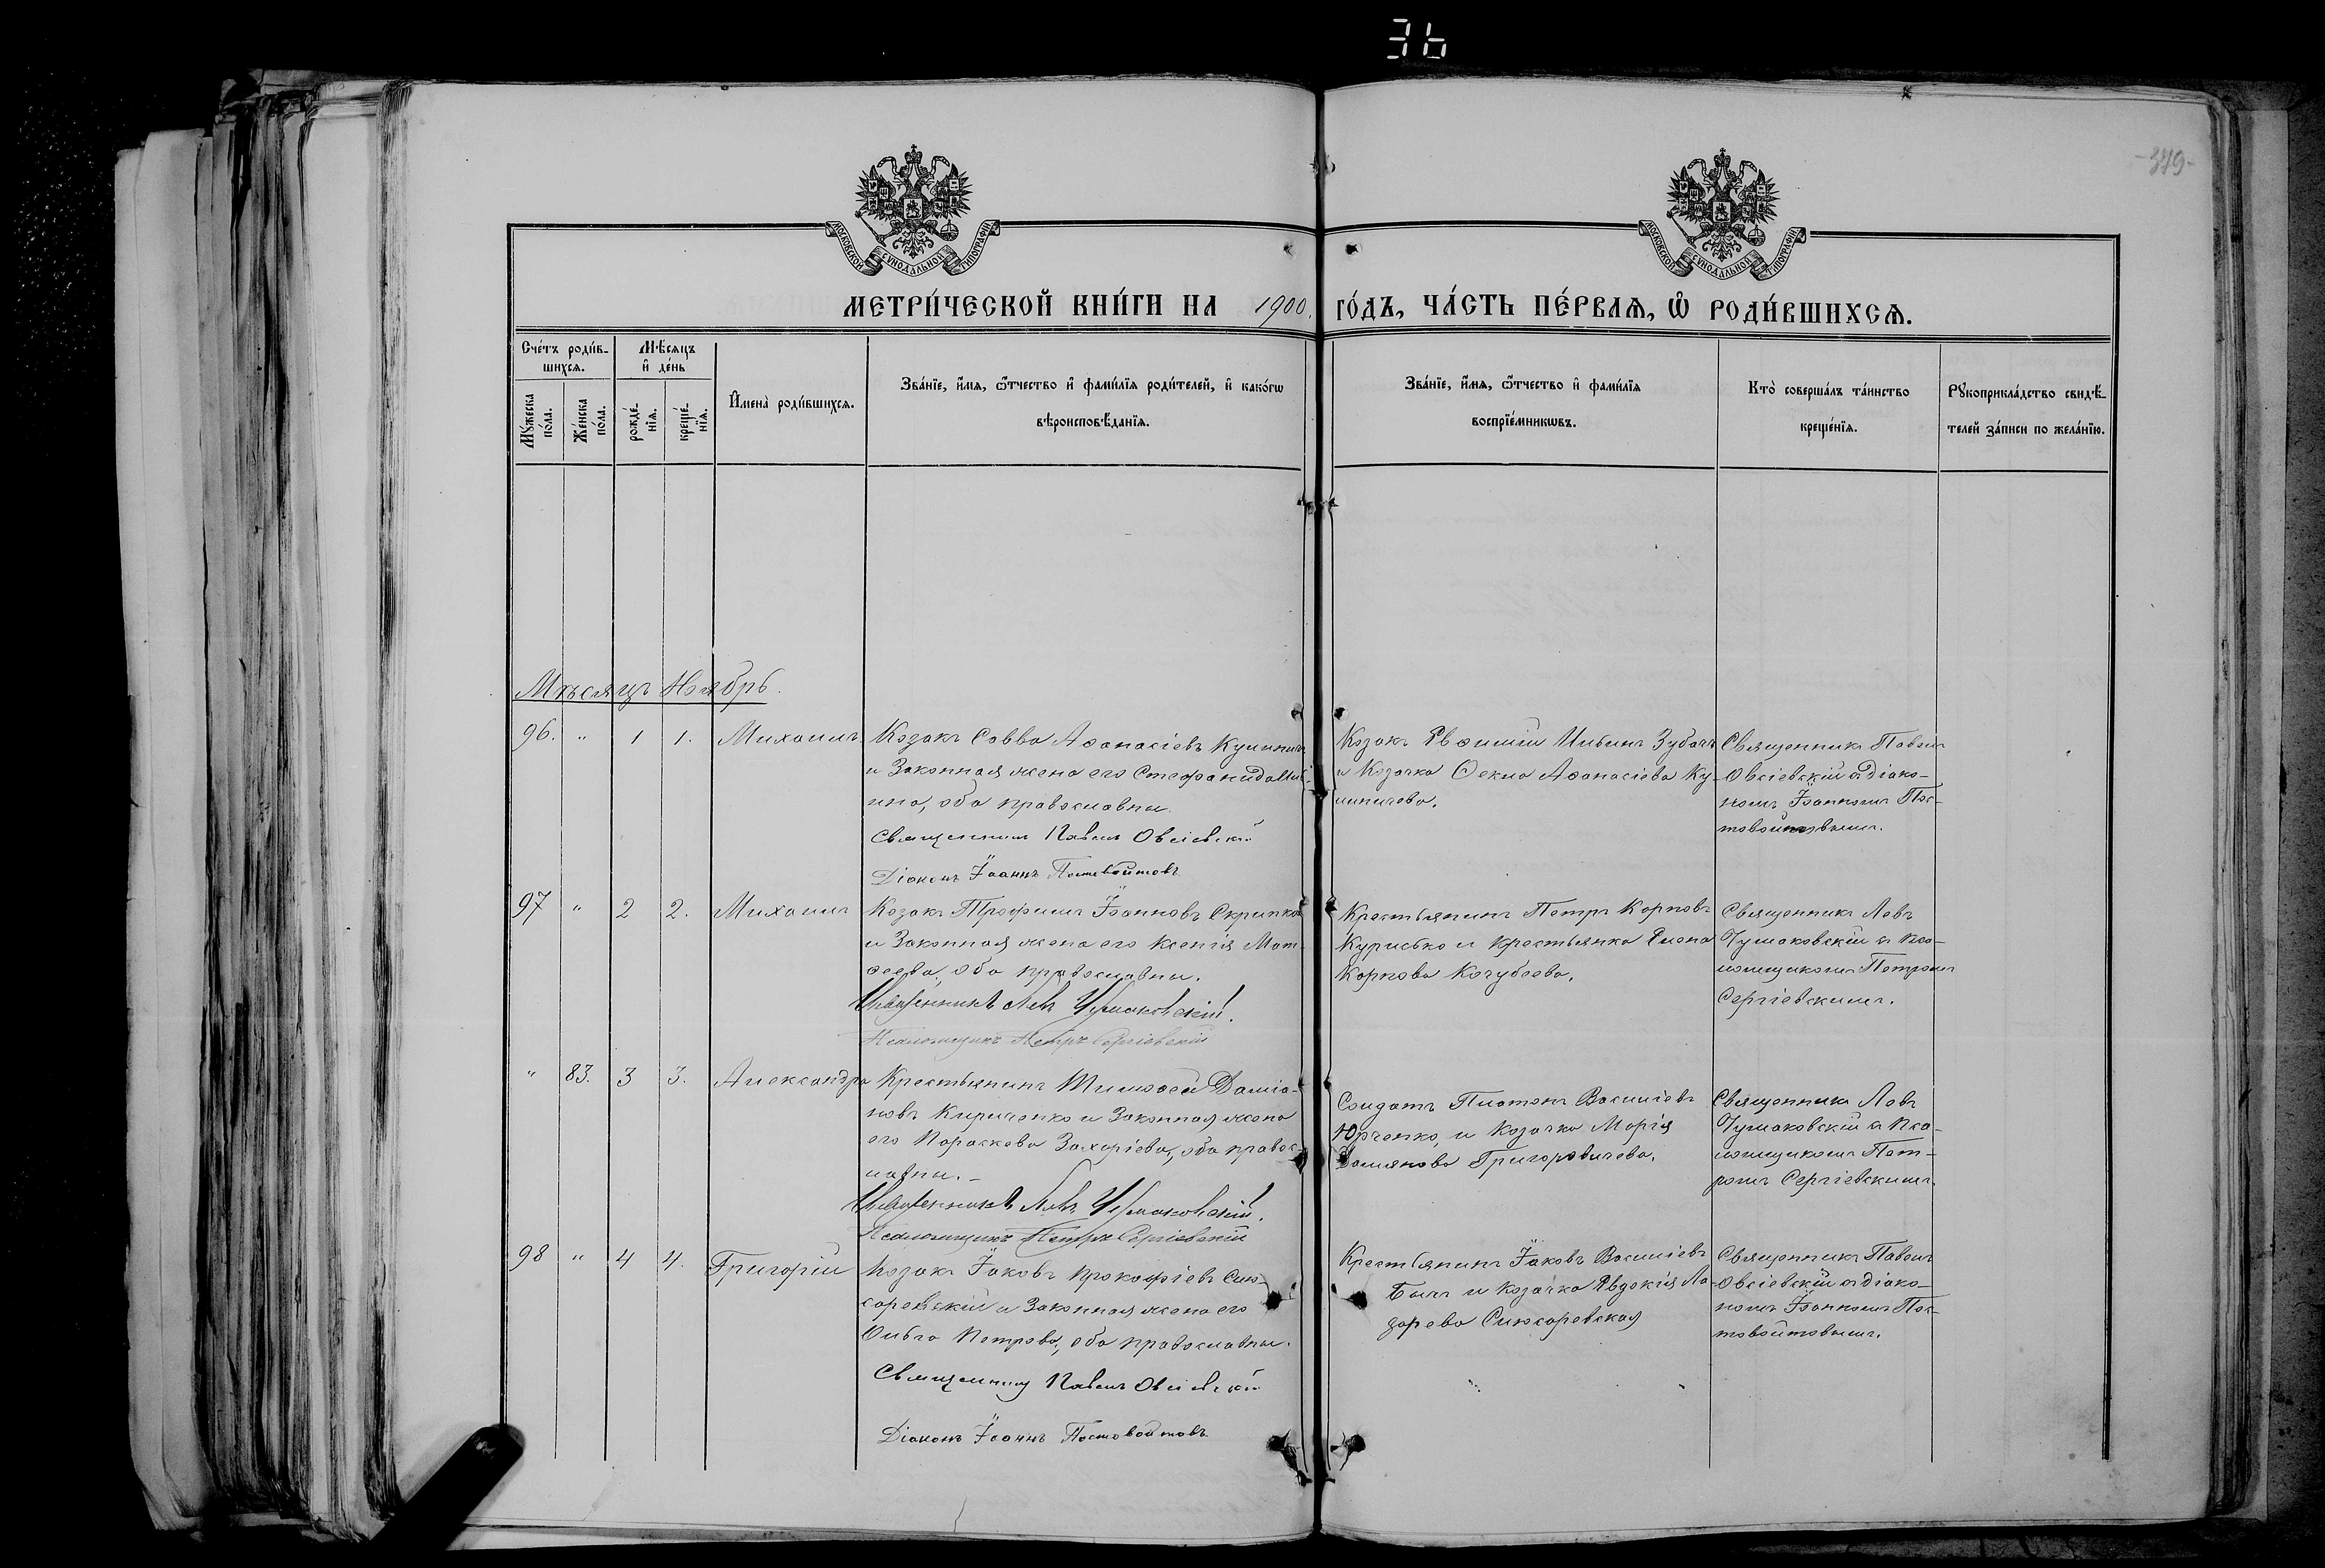 36
-379-
МОСКОВСКОЙ СѴНОДАЛЬНОЙ ТИПОГРАФІИ
МОСКОВСКОЙ СѴНОДАЛЬНОЙ ТИПОГРАФІИ
МЕТРИ́ЧЕСКОЙ КНИ́ГИ НА 1900. ГО́ДЪ, ЧА́СТЬ ПЕ́РВАѦ, Ѽ РОДИ́ВШИХСѦ.
Сче́тъ роди́в-
шихсѧ.
Мꙋ́жеска
по́ла.
Же́нска
по́ла.
Мѣ́сѧцъ
и҆ де́нь
рожде́-
нїѧ.
креще́-
нїѧ.
И҆мена̀ роди́вшихсѧ.
Зва́нїе, и҆́мѧ, ѻ҆́тчество и҆ фами́лїѧ роди́телей, и҆ како́гѡ
вѣроисповѣ́данїѧ.
Зва́нїе, и҆́мѧ, ѻ҆́тчество и҆ фами́лїѧ
воспрїе́мникѡвъ.
Кто̀ соверша́лъ та́инство
креще́нїѧ.
Рꙋкоприкла́дство свидѣ́-
телей за́писи по жела́нїю.
Мѣсяцъ Ноябрь.
96. " 1 1. Михаилъ.
Козакъ Савва Аѳанасіевъ
и Законная жена его Стефанида
ина, оба православны.
Священникъ Павелъ Овсіевскій
Діаконъ Іоаннъ Постовойтовъ
Козакъ Евѳимій Зубачъ
и Козачка Ѳекла Аѳанасіева Ку-
Священникъ Павелъ
Овсіевскій съ діако-
номъ Іоанномъ Пос-
97 " 2 2. Михаилъ
Козакъ Трофимъ Іоанновъ Скрипка
и Законная жена его Ксенія Мат-
ѳеева, оба православны.
Священникъ Левъ Чумаковскій.
Псаломщикъ Петръ Сергіевскій
Крестьянинъ Петръ Карповъ
Курисько и крестьянка Елена
Карпова Кочубеева.
Священникъ Левъ
Чумаковскій съ Пса-
ломщикомъ Петромъ
Сергіевскимъ.
" 83. 3 3. Александра
Крестьянинъ Тимоѳей Даміа-
новъ Кириченко и Законная жена
его Параскева Захаріева, оба правос-
лавны. -
Священникъ Левъ Чумаковскій.
Псаломщикъ Петръ Сергіевскій
Солдатъ Платонъ Василіевъ
Юрченко, и Козачка Марія
Даміанова Григоровичева.
Священникъ Левъ
Чумаковскій съ Пса-
ломщикомъ Пет-
ромъ Сергіевскимъ.
98 " 4 4. Григорій
Козакъ Іаковъ Прокофіевъ Слю-
саревскій и Законная жена его
Ольга Петрова, оба православны.
Священникъ Павелъ Овсіевскій
Діаконъ Іоаннъ Постовойтовъ
Крестьянинъ Іаковъ Василіевъ
Быкъ и Козачка Евдокія Ла-
зарева Слюсаревская
Священникъ Павелъ
Овсіевскій съ діако-
номъ Іоанномъ Пос-
товойтовымъ.